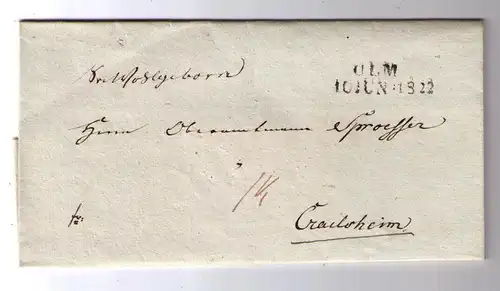 ULM
10 JUN 1822
Sr. Wohlgeborn
Herrn Oberamtmann Sproesser
fr:
Crailsheim